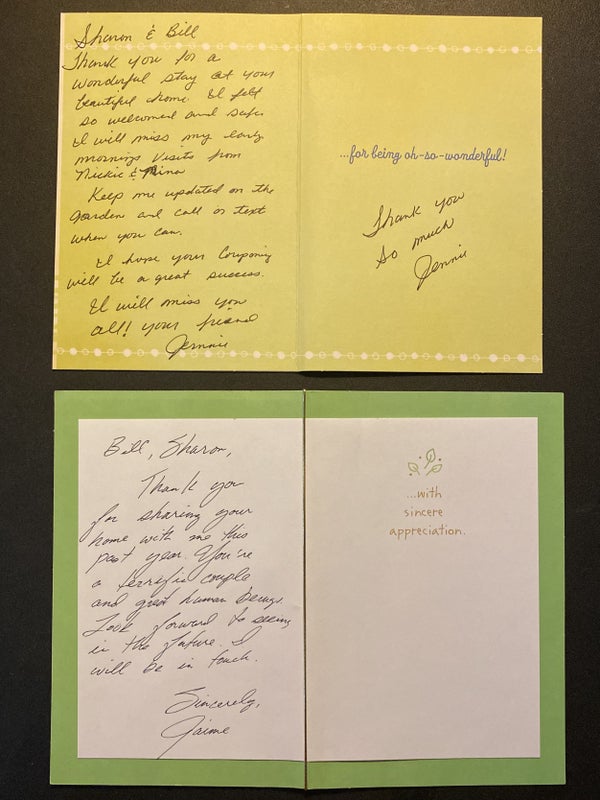 Sharon & Bill
Thank you for a
wonderful stay at your
beautiful home. I felt
so welcomed and safe.
I will miss my early
mornings visits from
Nickie & Nina
Keep me updated on the
garden and call or text
when you can.
I hope your Couponing
will be a great success.
I will miss you
all! your friend
Jennie
...for being oh-so-wonderful!
Thank you
so much
Jennie
Bill, Sharon,
Thank you
for sharing your
home with me this
past year. You're
a terrific couple
and great human beings.
Look forward to seeing
in the future. I
will be in touch.
Sincerely,
Jaime
...with
sincere
appreciation.